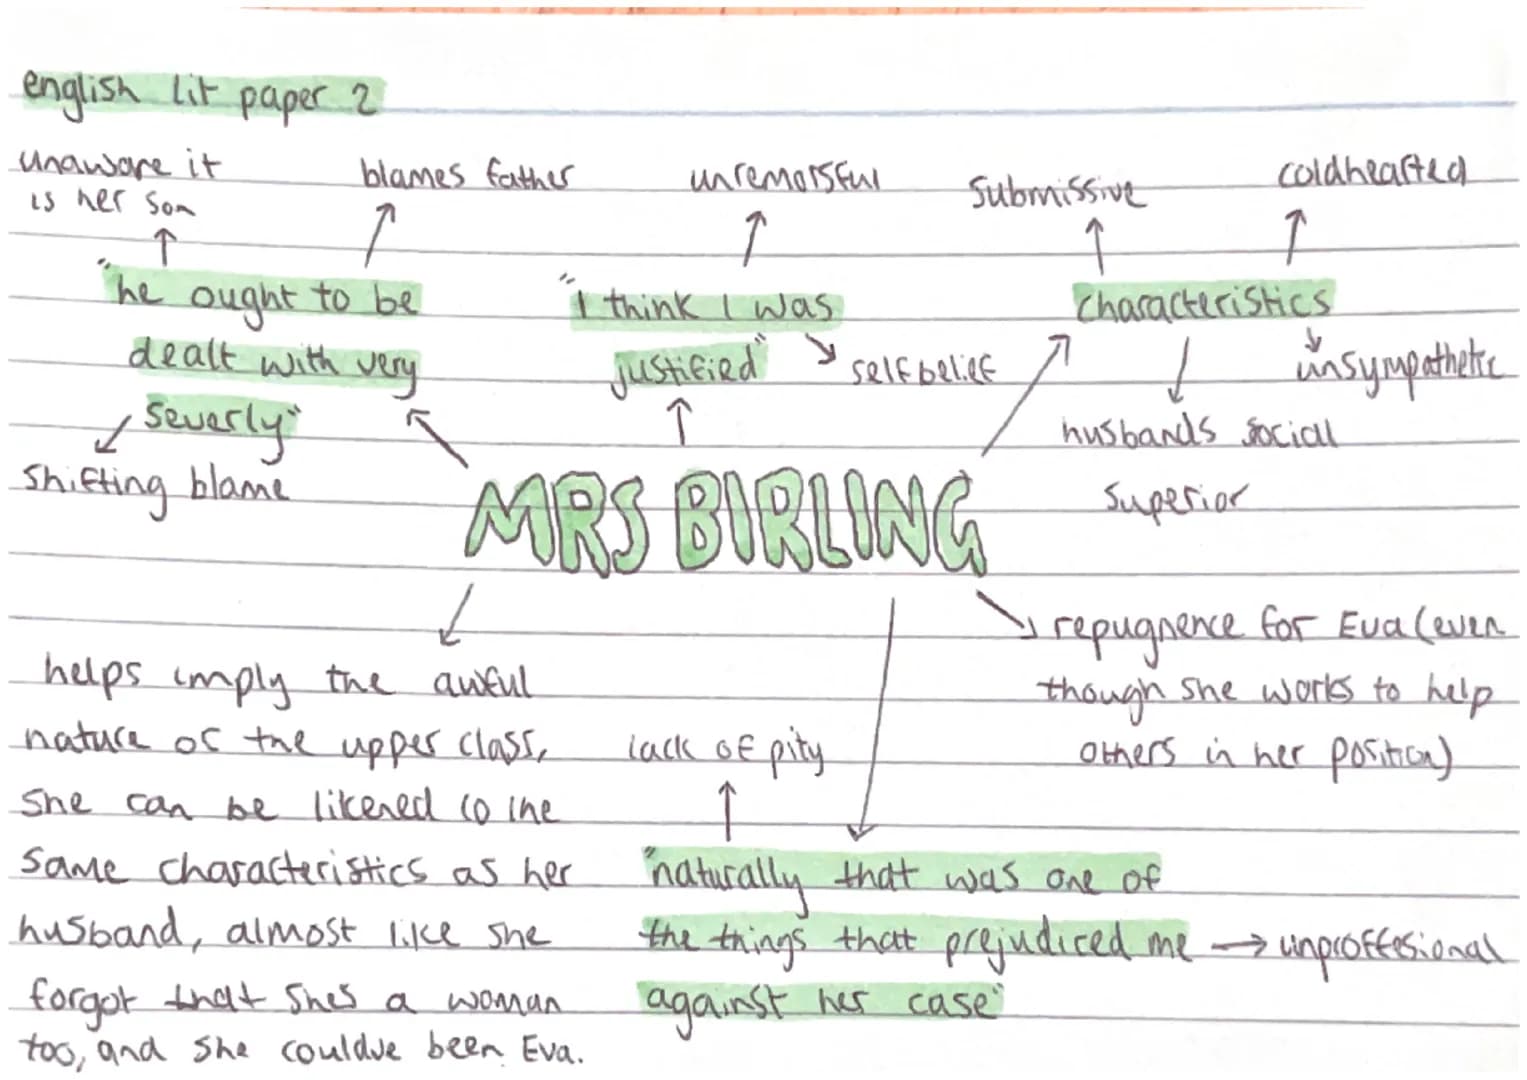 english lit paper 2
unaware it
is her son
blames father
unremorsful
submissive
coldhearted
"he ought to be
dealt with very
severly"
shifting blame
"I think I was
justified"
self belief
characteristics
unsympathetic
husbands social
superior
MRS BIRLING
helps imply the awful
nature of the upper class,
she can be likened to the
same characteristics as her
husband, almost like she
forgot that shes a woman
too, and she couldve been Eva.
repugnence for Eva (even
though she works to help
others in her position)
lack of pity
"naturally that was one of
the things that prejudiced me
against her case"
unproffesional